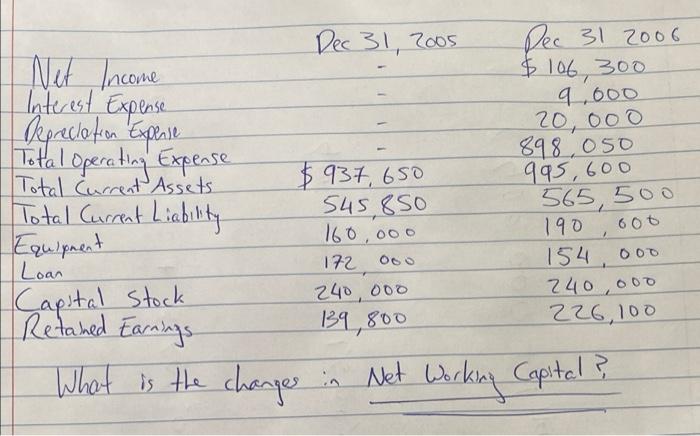 Dec 31, 2005 Dec 31 2006
Net Income - $ 106,300
Interest Expense - 9,000
Depreciation Expense - 20,000
Total Operating Expense - 898,050
Total Current Assets $ 937,650 995,600
Total Current Liability 545,850 565,500
Equipment 160,000 190,000
Loan 172,000 154,000
Capital Stock 240,000 240,000
Retained Earnings 139,800 226,100
What is the changes in Net Working Capital?